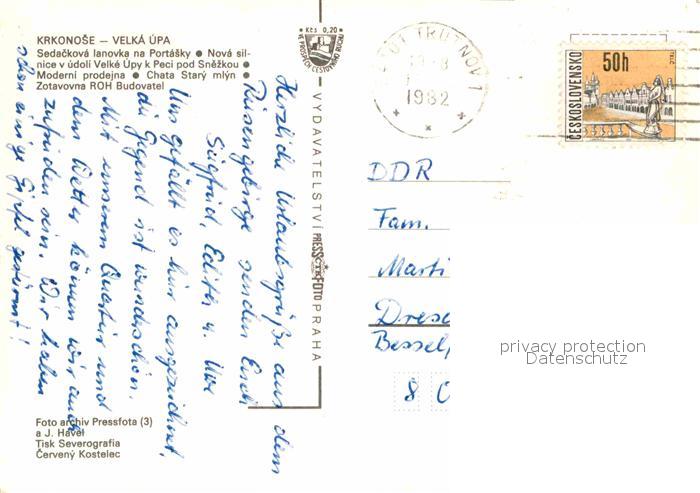 KRKONOŠE – VELKÁ ÚPA
Sedačková lanovka na Portášky ● Nová sil-
nice v údolí Velké Úpy k Peci pod Sněžkou ●
Moderní prodejna ● Chata Starý mlýn ●
Zotavovna ROH Budovatel
Herzliche Urlaubsgrüße aus dem
Riesengebirge senden Euch
Siegfried, Edith u. Uwe
Uns gefällt es hier ausgezeichnet,
die Gegend ist wunderschön.
Mit unserem Quartier und
dem Wetter können wir auch
zufrieden sein. Wir haben
schon einige Gipfel gestürmt!
Foto archiv Pressfota (3)
a J. Havel
Tisk Severografia
Červený Kostelec
Kčs 0,20
VE PROSPĚCH CESTOVNÍHO RUCHU
VYDAVATELSTVÍ PRESSFOTO PRAHA
ČTK
TRUTNOV 1
1982
ČESKOSLOVENSKO
50h
DDR
Fam.
Marti
Dres
Bessel
8
privacy protection
Datenschutz